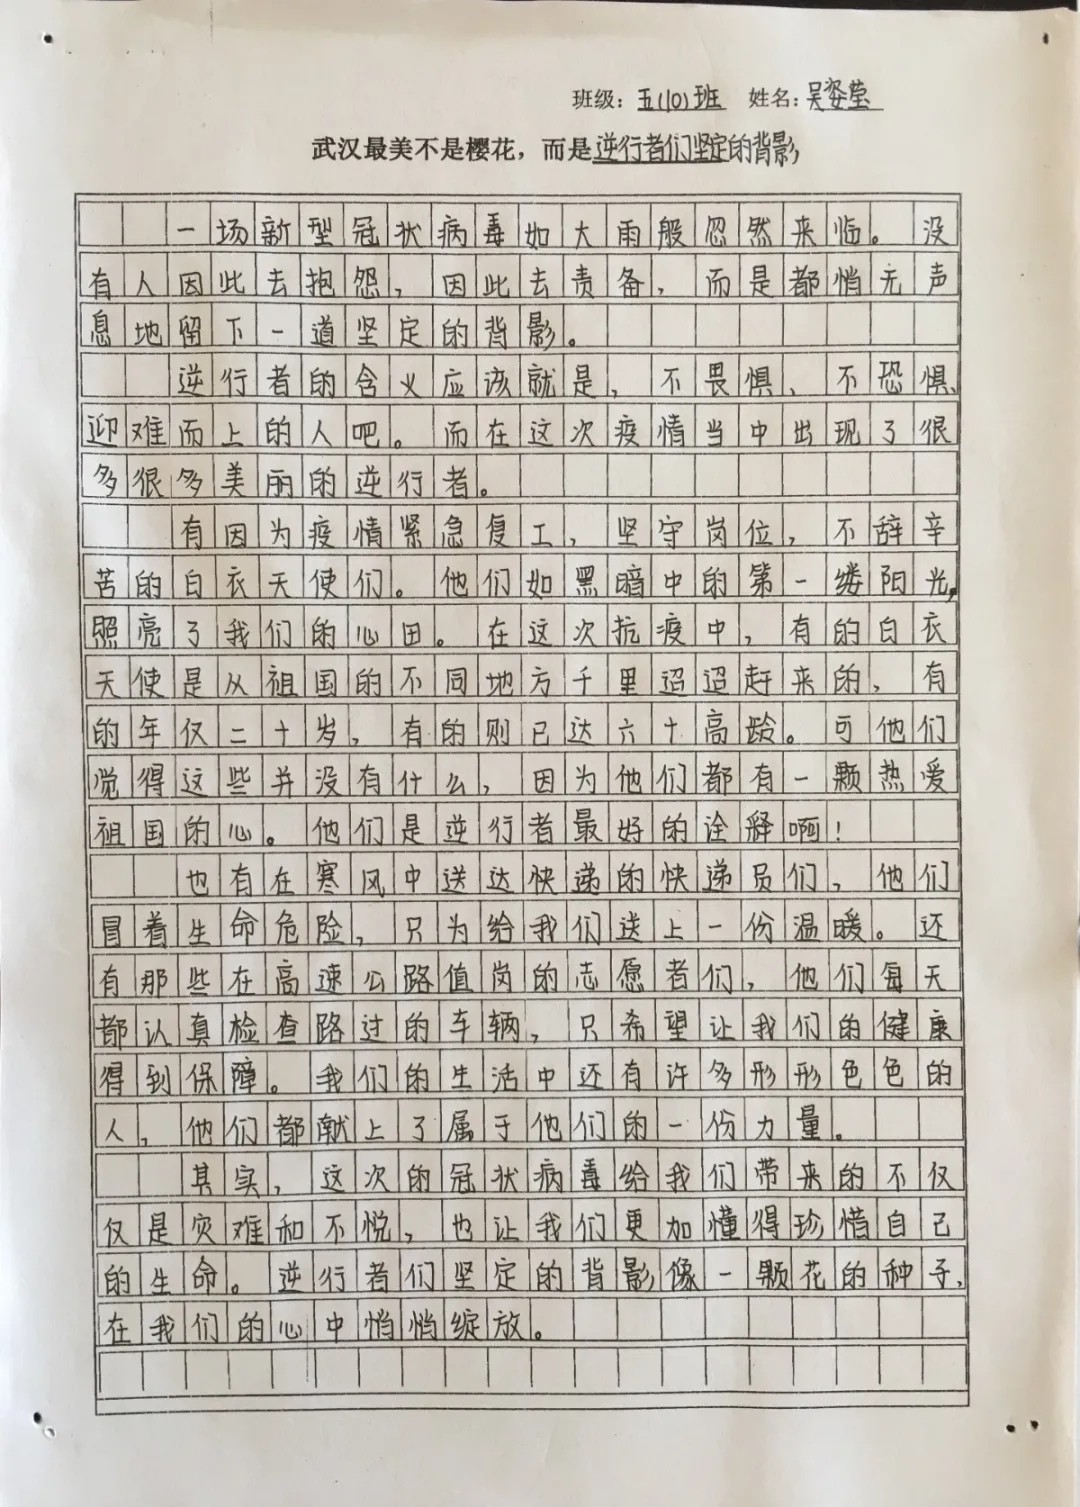 班级：五(10)班 姓名：吴姿莹
武汉最美不是樱花，而是逆行者们坚定的背影
一场新型冠状病毒如大雨般忽然来临。没
有人因此去抱怨，因此去责备，而是都悄无声
息地留下一道坚定的背影。
逆行者的含义应该就是，不畏惧、不恐惧、
迎难而上的人吧。而在这次疫情当中出现了很
多很多美丽的逆行者。
有因为疫情紧急复工，坚守岗位，不辞辛
苦的白衣天使们。他们如黑暗中的第一缕阳光，
照亮了我们的心田。在这次抗疫中，有的白衣
天使是从祖国的不同地方千里迢迢赶来的，有
的年仅二十岁，有的则已达六十高龄。可他们
觉得这些并没有什么，因为他们都有一颗热爱
祖国的心。他们是逆行者最好的诠释啊！
也有在寒风中送达快递的快递员们，他们
冒着生命危险，只为给我们送上一份温暖。还
有那些在高速公路值岗的志愿者们，他们每天
都认真检查路过的车辆，只希望让我们的健康
得到保障。我们的生活中还有许多形形色色的
人，他们都献上了属于他们的一份力量。
其实，这次的冠状病毒给我们带来的不仅
仅是灾难和不悦，也让我们更加懂得珍惜自己
的生命。逆行者们坚定的背影像一颗花的种子，
在我们的心中悄悄绽放。